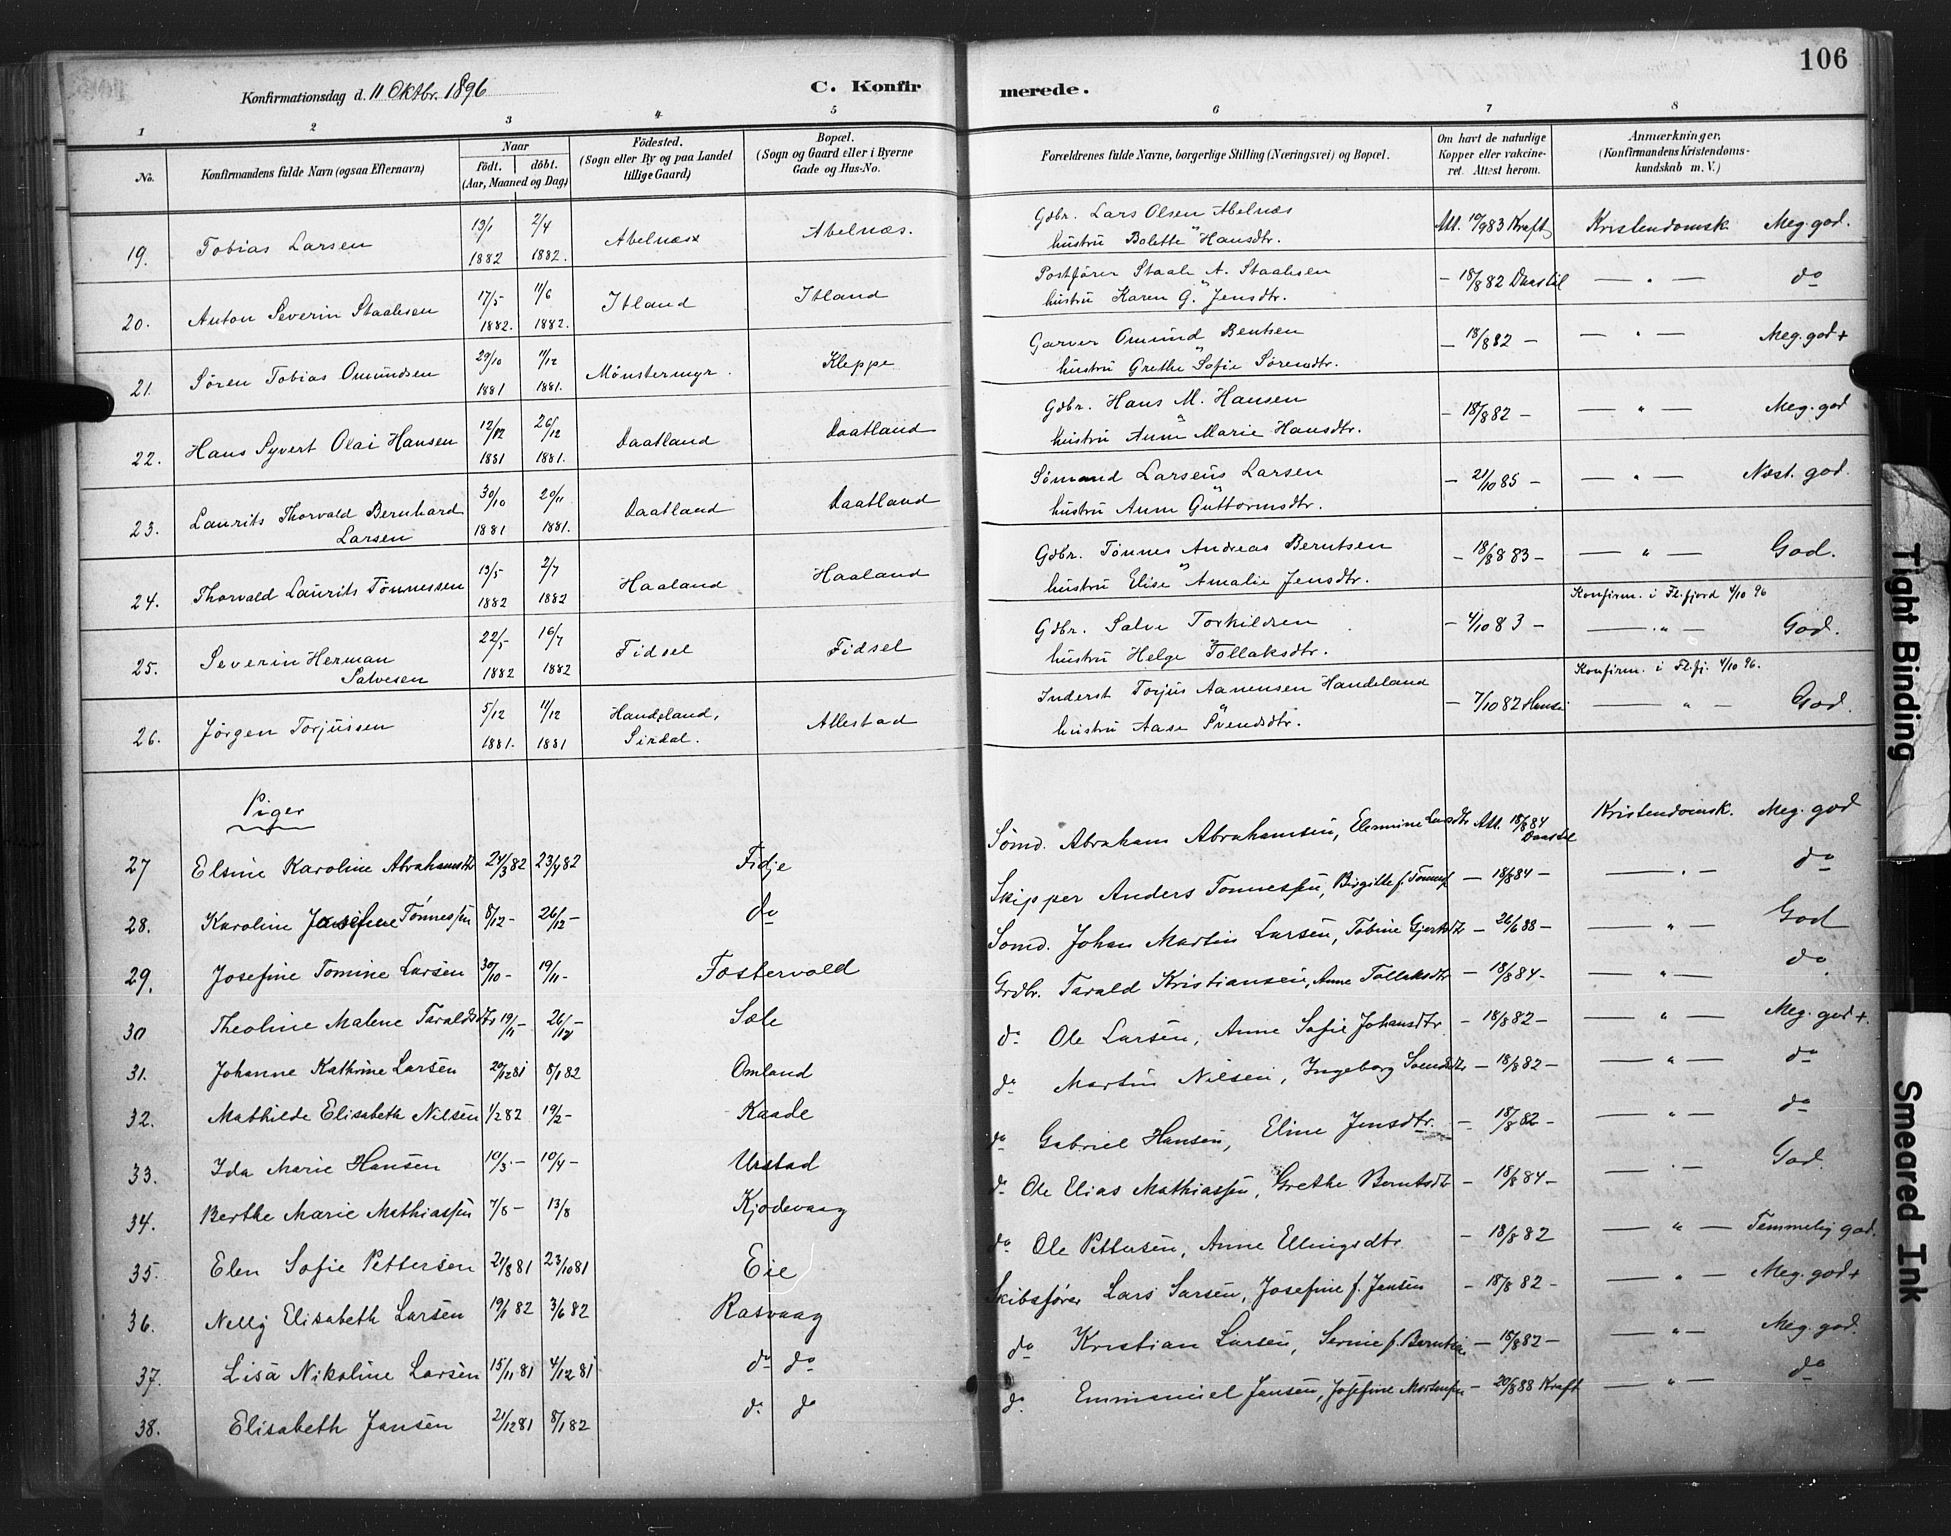 106
Konfirmationsdag d. 11 Oktbr. 1896
C. Konfirmerede.
1 2 3 4 5 6 7 8
No.
Konfirmandens fulde Navn (ogsaa Efternavn)
Naar
födt. döbt.
(Aar, Maaned og Dag)
Födested.
(Sogn eller By og paa Landet
tillige Gaard)
Bopæl.
(Sogn og Gaard eller i Byerne
Gade og Hus-No.
Forældrenes fulde Navne, borgerlige Stilling (Næringsvei) og Bopæl.
Om havt de naturlige
Kopper eller vakcine-
ret. Attest herom.
Anmærkninger,
(Konfirmandens Kristendoms-
kundskab m. V.)
19. Tobias Larsen 13/1 1882 2/4 1882. Abelnæs Abelnæs. Gdbr. Lars Olsen Abelnæs
hustru Bolette Hansdtr. Att. 10/9 83 Kraft Kristendomsk. Meg. god.
20. Anton Severin Staalesen 17/5 1882. 11/6 1882. Itland Itland Postfører Staale A. Staalesen
hustru Karen G. Jensdtr. – 18/8 82 Daastøl — " — do
21. Søren Tobias Omundsen 29/10 1881 11/12 1881. Mønstermyr. Kleppe Garver Omund Bentsen
hustru Grethe Sofie Sørensdtr. – 18/8 82 – — " — Meg. god +
22. Hans Syvert Olai Hansen 12/12 1881 26/12 1881. Daatland Daatland Gdbr. Hans M. Hansen
hustru Anne Marie Hansdtr. – 18/8 82 – — " — Meg. god
23. Laurits Thorvald Bernhard
Larsen 30/10 1881 20/11 1881. Daatland Daatland Sømand Larseus Larsen
hustru Anne Guttormsdtr. – 21/10 85 – — " — Næst. god.
24. Thorvald Laurits Tønnessen 13/5 1882 2/7 1882 Haaland Haaland Gdbr. Tønnes Andreas Berntsen
hustru Elise Amalie Jensdtr. – 18/8 83 – — " — God.
Konfirm. i Fl.fjord 4/10 96
25. Severin Herman
Salvesen 22/5 1882 16/7 1882 Fidsel Fidsel Gdbr. Salve Torkildsen
hustru Helge Tollaksdtr. – 4/10 83 – — " — God.
Konfirm. i Fl.fj. 4/10 96.
26. Jørgen Torjussen 5/12 1881. 11/12 1881 Handeland,
Sirdal. Allestad Inderst Torjus Aanensen Handeland
hustru Aase Svendsdtr. – 7/10 82 — " — God.
Piger
27 Elsine Karoline Abrahamsdtr 24/3 82 23/4 82 Fidje Sømd. Abraham Abrahamsen, Elenmine Larsdtr Att. 18/8 84
Daastøl Kristendomsk. Meg. god
28. Karoline Josefine Tønnessen 8/12 – 26/12 – do Skipper Anders Tønnessen, Birgitte f. Tønnes – 18/8 84 – — " — do
29. Josefine Tomine Larsen 30/10 – 19/11 – Fostervold Sømd. Johan Martin Larsen, Tobine Gjertsdtr – 26/6 88 – — " — God
30 Theoline Malene Taraldsdtr 19/11 – 26/12 – Sæle Grdbr. Tarald Kristiansen, Anne Tollaksdtr – 18/8 84 – — " — do
31. Johanne Kathrine Larsen 20/12 81 8/1 82 Omland do Ole Larsen, Anne Sofie Johansdtr – 18/8 82 – — " — Meg. god +.
32. Mathilde Elisabeth Nilsen 1/2 82 19/2 – Kaade do Martin Nilsen, Ingeborg – 18/8 82 – — " — do
33. Ida Marie Hansen 10/3 – 10/4 – Urstad do Gabriel Hansen, Eline Jensdtr. – 18/8 82 – — " — do
34. Berthe Marie Mathiassen 7/8 – 13/8 Kjødevaag do Ole Elias Mathiassen, Grethe Berntsdtr – 18/8 84 – — " — God.
35. Elen Sofie Pettersen 21/8 81 23/10 81 Eie do Ole Pettersen, Anne Ellingsdtr. – 18/8 82 — " — Temmelig god.
36. Nelly Elisabeth Larsen 19/1 82 3/6 82 Rasvaag Skibsfører Lars Larsen, Josefine f. Jansen – 18/8 82 – — " — Meg. god +
37. Lisa Nikoline Larsen 15/11 81 4/12 81 do do do Kristian Larsen, Serine f. Berntsen – 18/8 82 – — " — Meg. god.
38. Elisabeth Jansen 21/12 81 8/1 82 do do do Emmanuel Jansen, Josefine Mortensen – 20/8 88 Kraft — " — do
Tight Binding
Smeared Ink